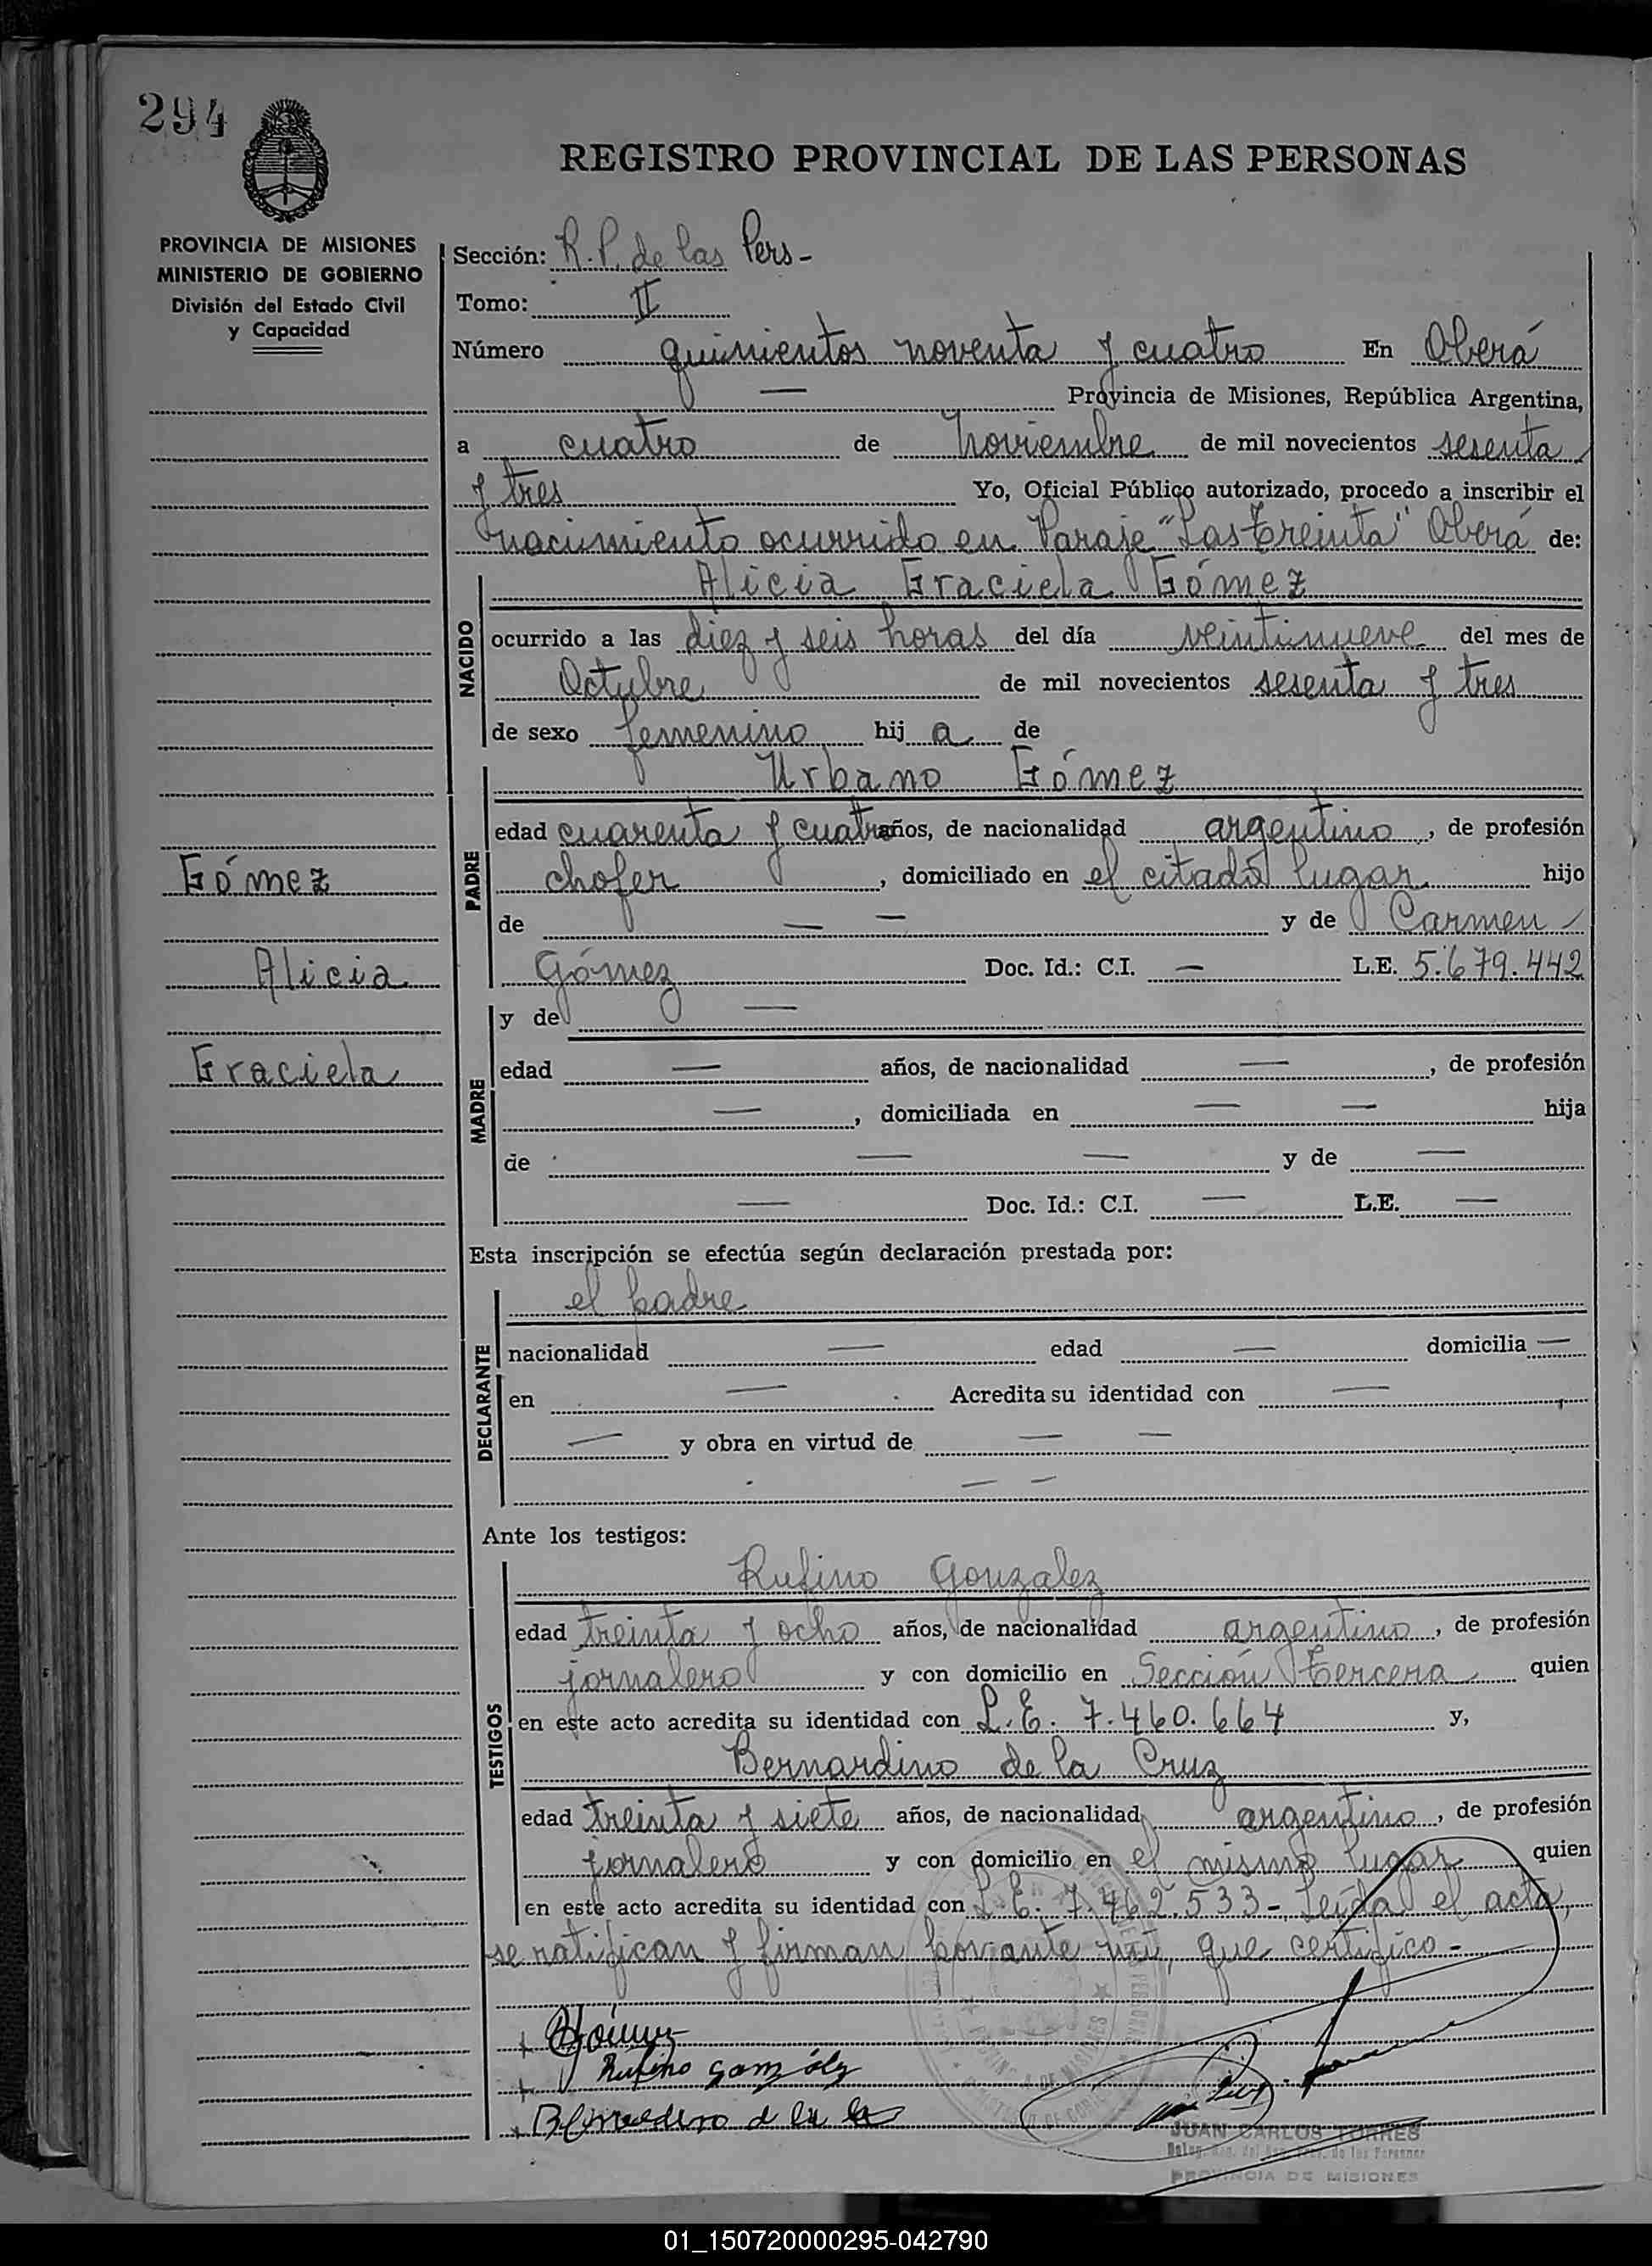 294
REGISTRO PROVINCIAL DE LAS PERSONAS
PROVINCIA DE MISIONES
MINISTERIO DE GOBIERNO
División del Estado Civil
y Capacidad
Sección: R.P. de las Pers-
Tomo: II
Número quinientos noventa y cuatro En Oberá
— Provincia de Misiones, República Argentina,
a cuatro de Noviembre de mil novecientos sesenta
y tres Yo, Oficial Público autorizado, procedo a inscribir el
nacimiento ocurrido en Paraje "Las treinta" Oberá de:
NACIDO
Alicia Graciela Gómez
ocurrido a las diez y seis horas del día veintinueve del mes de
Octubre de mil novecientos sesenta y tres
de sexo femenino hij a de
PADRE
Urbano Gómez
edad cuarenta y cuatro años, de nacionalidad argentino, de profesión
chofer, domiciliado en el citado lugar hijo
de — — y de Carmen
Gómez Doc. Id.: C.I. — L.E. 5.679.442
Gómez
Alicia
Graciela
MADRE
y de —
edad — años, de nacionalidad —, de profesión
—, domiciliada en — — hija
de — — y de —
— Doc. Id.: C.I. — L.E. —
Esta inscripción se efectúa según declaración prestada por:
DECLARANTE
el padre
nacionalidad — edad — domicilia —
en — Acredita su identidad con —
— y obra en virtud de — —
— —
Ante los testigos:
TESTIGOS
Rufino Gonzalez
edad treinta y ocho años, de nacionalidad argentino, de profesión
jornalero y con domicilio en Sección tercera quien
en este acto acredita su identidad con L.E. 7.460.664 y,
Bernardino de la Cruz
edad treinta y siete años, de nacionalidad argentino, de profesión
jornalero y con domicilio en el mismo lugar quien
en este acto acredita su identidad con L.E. 7.462.533- Leída el acta,
se ratifican y firman por ante mí, que certifico-
+ Gómez
+ Rufino Gonzalez
+ Bernardino d la
JUAN CARLOS TORRES
de las Personas
PROVINCIA DE MISIONES
01_150720000295-042790